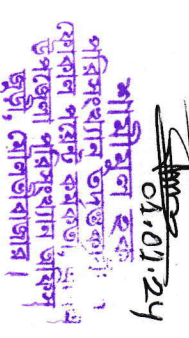 01.01.24
শামীমুল হক
পরিসংখ্যান তদন্তকারী
ফোকাল পয়েন্ট কর্মকর্তা,
উপজেলা পরিসংখ্যান অফিস
জুড়ী, মৌলভীবাজার।